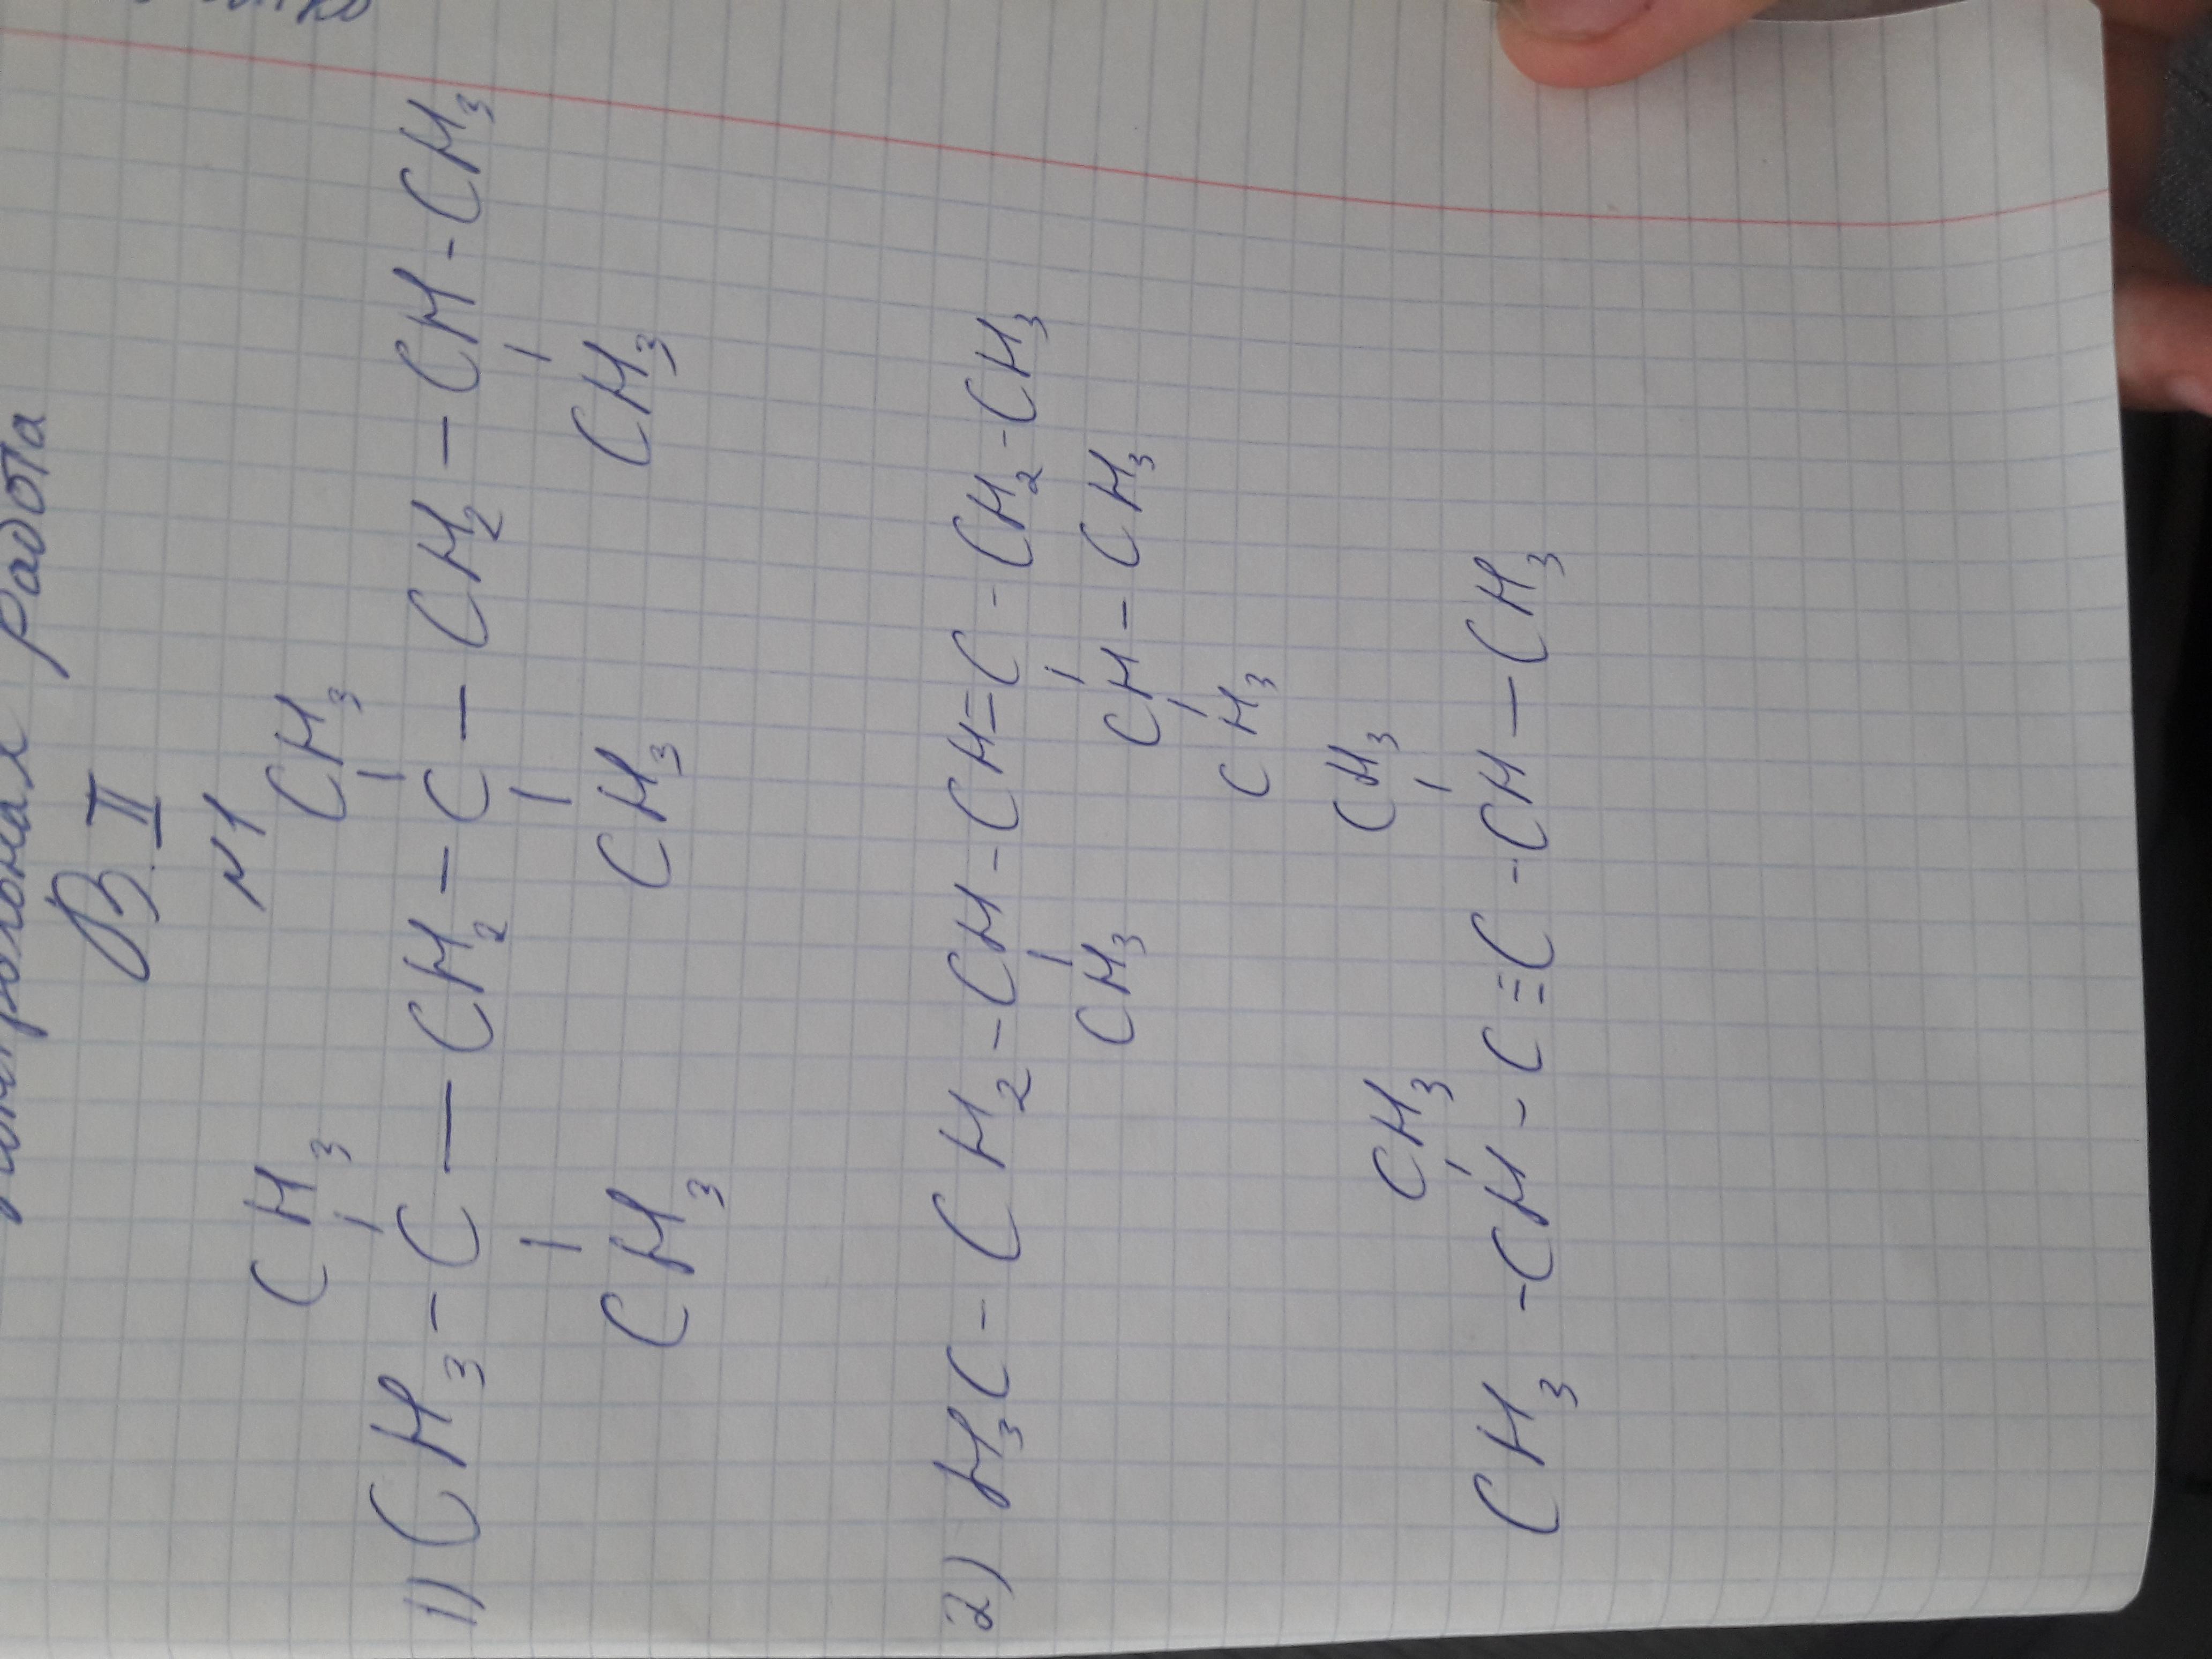 Контрольная работа
В II
N1
CH3 CH3
1) CH3-C-CH2-C-CH2-CH-CH3
CH3 CH3 CH3
2) H3C-CH2-CH-CH=C-CH2-CH3
CH3 CH-CH3
CH3
CH3 CH3
CH3-CH-C≡C-CH-CH3